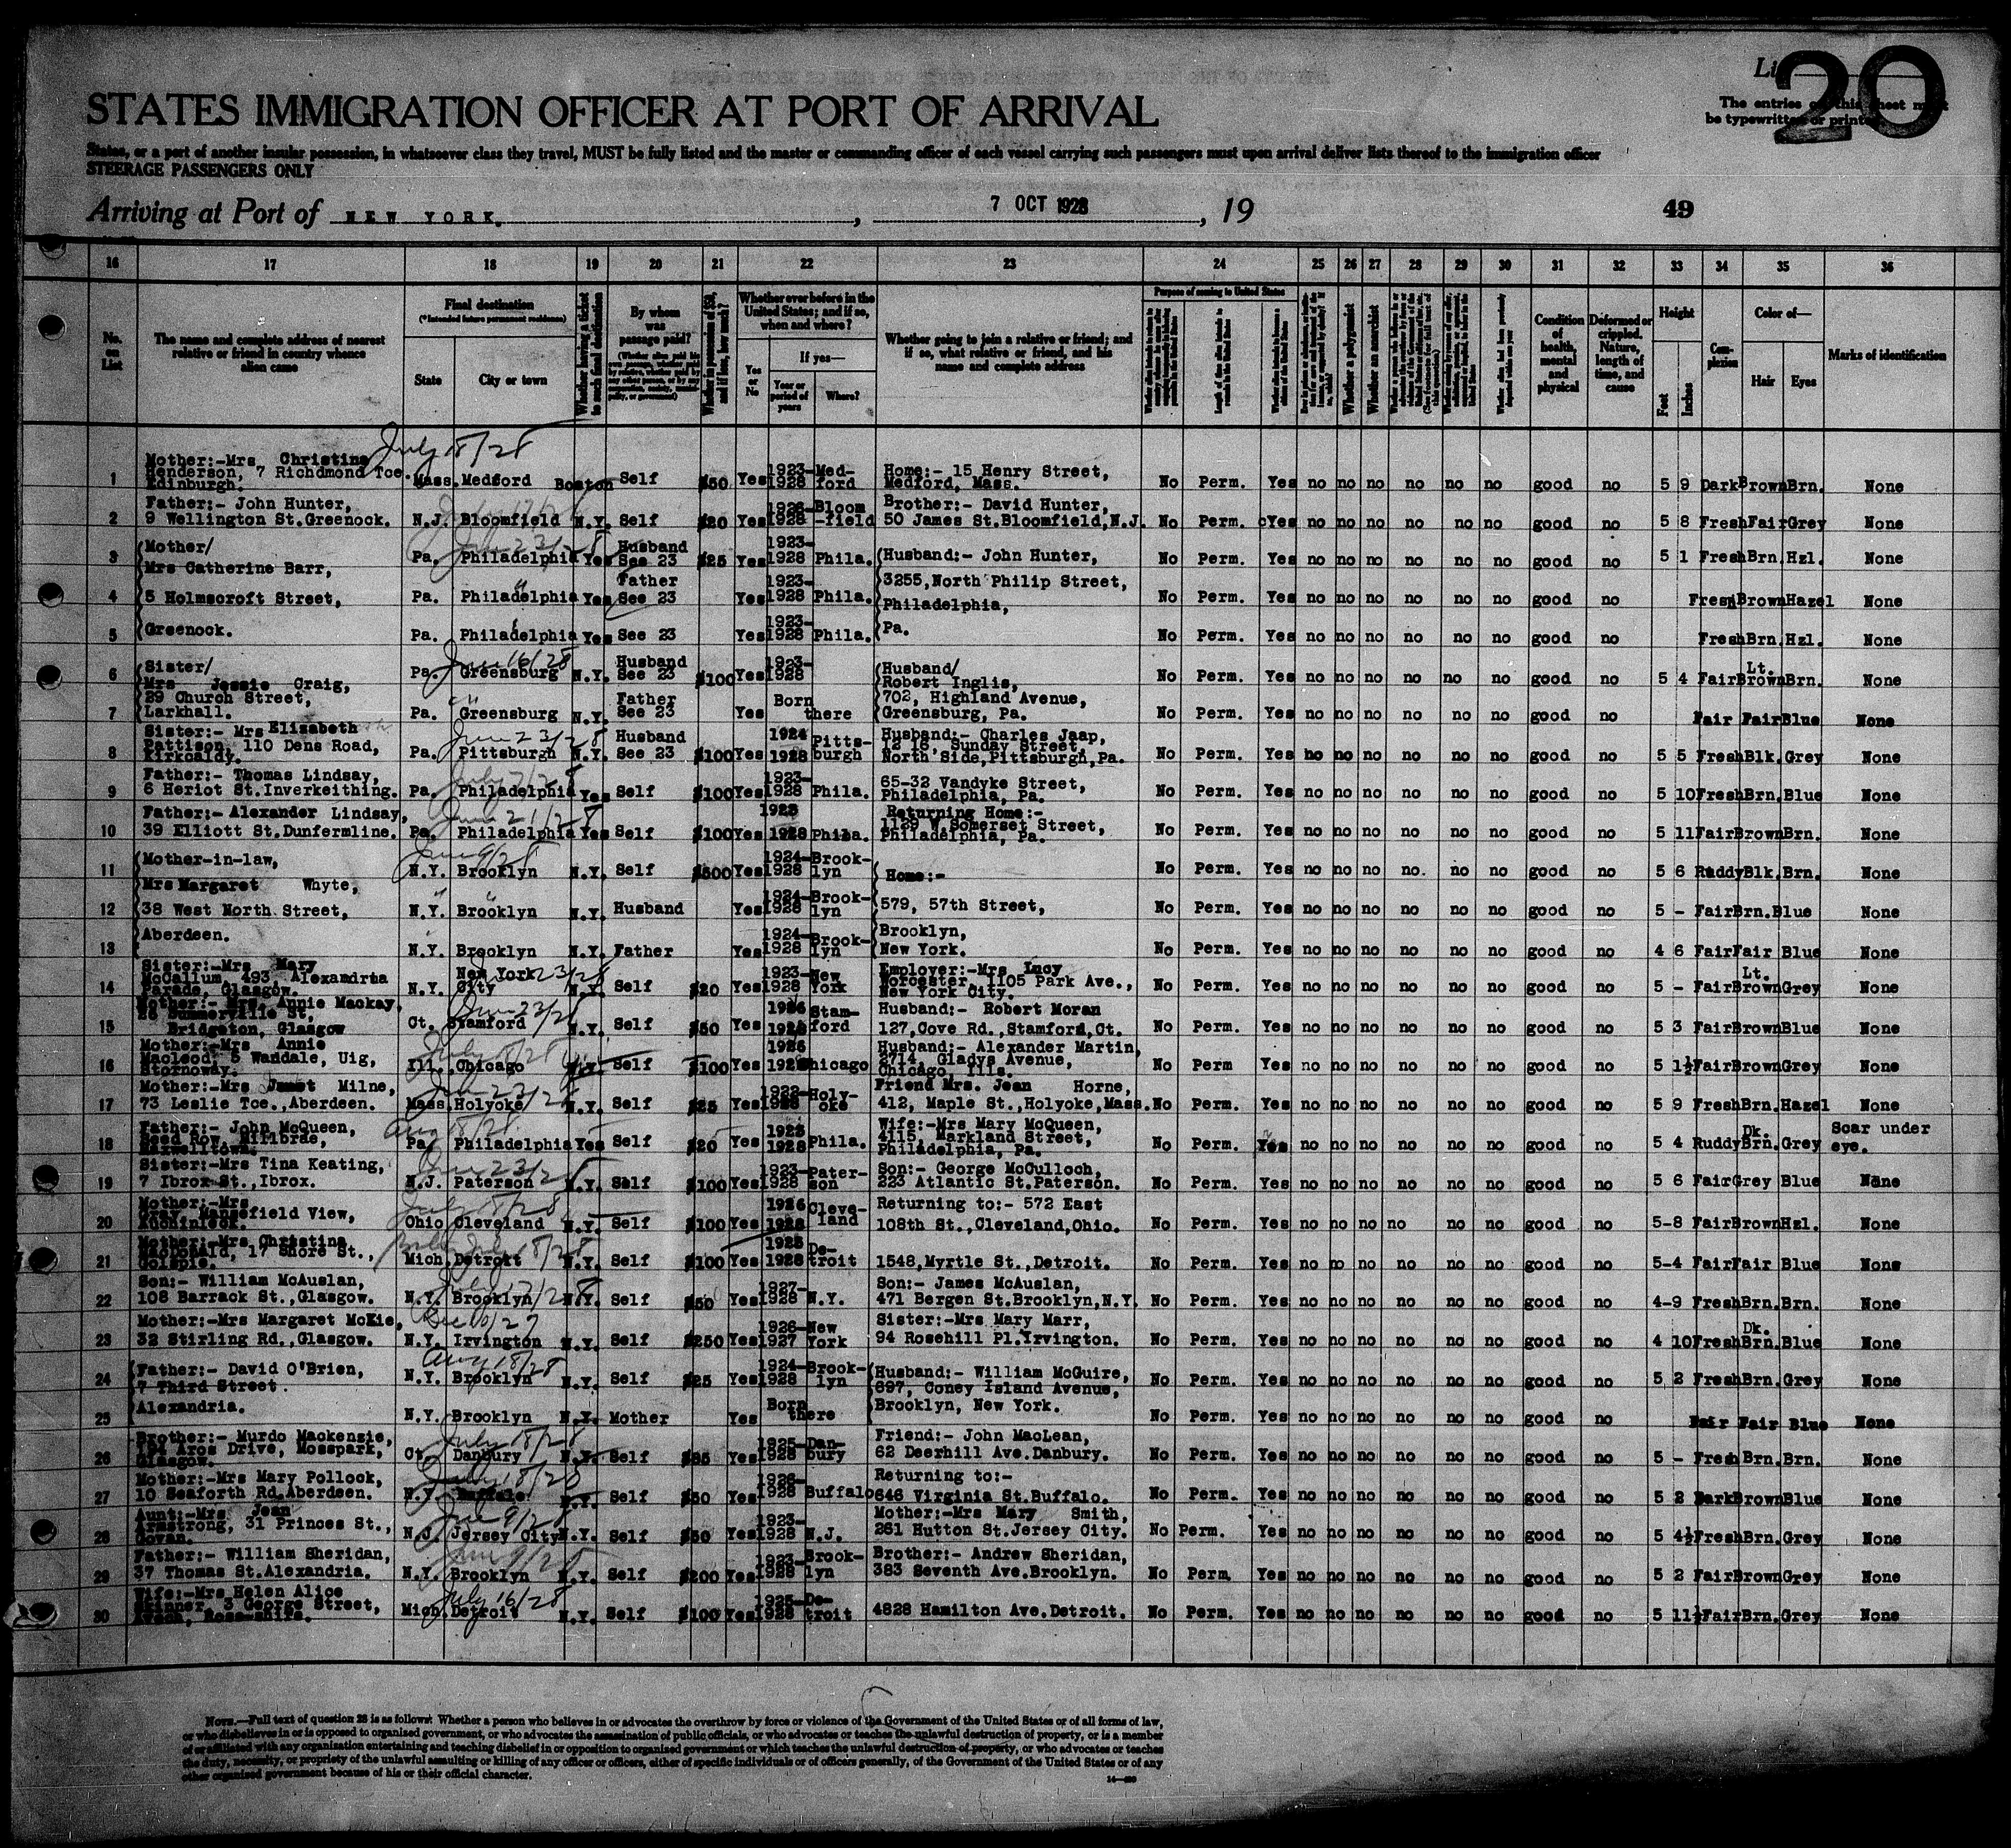 List 20
The entries on this sheet must
be typewritten or printed.
STATES IMMIGRATION OFFICER AT PORT OF ARRIVAL
States, or a port of another insular possession, in whatsoever class they travel, MUST be fully listed and the master or commanding officer of each vessel carrying such passengers must upon arrival deliver lists thereof to the immigration officer
STEERAGE PASSENGERS ONLY
Arriving at Port of NEW YORK, 7 OCT 1928, 19 49
16 17 18 19 20 21 22 23 24 25 26 27 28 29 30 31 32 33 34 35 36
No. on List
The name and complete address of nearest relative or friend in country whence alien came
Final destination
(*Intended future permanent residence)
State City or town
Whether having a ticket to such final destination
By whom was passage paid?
Whether in possession of $50, and if less, how much?
Whether ever before in the United States; and if so, when and where?
Yes or No
If yes—
Year or period of years
Where?
Whether going to join a relative or friend; and if so, what relative or friend, and his name and complete address
Purpose of coming to United States
Whether a polygamist
Whether an anarchist
Condition of health, mental and physical
Deformed or crippled. Nature, length of time, and cause
Height
Feet Inches
Complexion
Color of—
Hair Eyes
Marks of identification
July 18/28
1 Mother:-Mrs Christina Henderson, 7 Richdmond Tce. Edinburgh. Mass. Medford Boston Self $50 Yes 1923-1928 Medford Home:- 15 Henry Street, Medford, Mass. No Perm. Yes no no no no no no good no 5 9 Dark Brown Brn. None
2 Father:- John Hunter, 9 Wellington St.Greenock. N.J. Bloomfield N.Y. Self $20 Yes 1928 Bloom-field Brother:- David Hunter, 50 James St.Bloomfield,N.J. No Perm. Yes no no no no no no good no 5 8 Fresh Fair Grey None
3 Mother/ Mrs Catherine Barr, Pa. Philadelphia Yes Husband See 23 $25 Yes 1923-1928 Phila. Husband:- John Hunter, No Perm. Yes no no no no no no good no 5 1 Fresh Brn. Hzl. None
4 5 Holmscroft Street, Pa. Philadelphia Yes Father See 23 Yes 1923-1928 Phila. 3255,North Philip Street, Philadelphia, No Perm. Yes no no no no no no good no Fresh Brown Hazel None
5 Greenock. Pa. Philadelphia Yes See 23 Yes 1923-1928 Phila. Pa. No Perm. Yes no no no no no no good no Fresh Brn. Hzl. None
June 16/28
6 Sister/ Mrs Jessie Craig, Pa. Greensburg N.Y. Husband See 23 $100 Yes 1923-1928 Husband/ Robert Inglis, No Perm. Yes no no no no no no good no 5 4 Fair Lt. Brown Brn. None
7 29 Church Street, Larkhall. Pa. Greensburg N.Y. Father See 23 Yes Born there 702, Highland Avenue, Greensburg, Pa. No Perm. Yes no no no no no no good no Fair Fair Blue None
June 23/28
8 Sister:- Mrs Elizabeth Pattison, 110 Dens Road, Kirkcaldy. Pa. Pittsburgh N.Y. Husband See 23 $100 Yes 1924 1928 Pitts-burgh Husband:- Charles Jaap, Sunday Street, North Side,Pittsburgh,Pa. No Perm. Yes no no no no no no good no 5 5 Fresh Blk. Grey None
9 Father:- Thomas Lindsay, 6 Heriot St.Inverkeithing. Pa. Philadelphia Yes Self $100 Yes 1923-1928 Phila. 65-32 Vandyke Street, Philadelphia, Pa. No Perm. Yes no no no no no no good no 5 10 Fresh Brn. Blue None
June 21/28
10 Father:- Alexander Lindsay, 39 Elliott St.Dunfermline. Pa. Philadelphia Yes Self $100 Yes 1923 1928 Phila. Returning Home:- 1129 W Somerset Street, Philadelphia, Pa. No Perm. Yes no no no no no no good no 5 11 Fair Brown Brn. None
11 Mother-in-law, N.Y. Brooklyn N.Y. Self $500 Yes 1924-1928 Brook-lyn Home:- No Perm. Yes no no no no. no no good no 5 6 Ruddy Blk. Brn. None
12 Mrs Margaret Whyte, 38 West North Street, N.Y. Brooklyn N.Y. Husband Yes 1924-1928 Brook-lyn 579, 57th Street, No Perm. Yes no no no no no no good no 5 - Fair Brn. Blue None
13 Aberdeen. N.Y. Brooklyn N.Y. Father Yes 1924-1928 Brook-lyn Brooklyn, New York. No Perm. Yes no no no no no no good no 4 6 Fair Fair Blue None
14 Sister:-Mrs Mary McCallum 493 Alexandria Parade, Glasgow. N.Y. New York City N.Y. Self $20 Yes 1923-1928 New York Employer:-Mrs Lucy Worcester, 1105 Park Ave., New York City. No Perm. Yes no no no no no no good no 5 - Fair Lt. Brown Grey None
15 Mother:- Mrs. Annie Mackay, 26 Summerville St, Bridgeton, Glasgow Ct. Stamford N.Y. Self $50 Yes 1926 1928 Stam-ford Husband:- Robert Moran 127,Cove Rd.,Stamford,Ct. No Perm. Yes no no no no no no good no 5 3 Fair Brown Blue None
16 Mother:-Mrs Annie Macleod, 5 Uig, Stornoway. Ill. Chicago N.Y. Self $100 Yes Chicago Husband:- Alexander Martin, 2714, Gladys Avenue, Chicago, Ills. No Perm Yes no no no no no no good no 5 1½ Fair Brown Grey None
17 Mother:-Mrs Milne, 73 Leslie Tce.,Aberdeen. Mass. Holyoke N.Y. Self $25 Yes Holy-oke Friend Mrs. Jean Horne, 412, Maple St.,Holyoke,Mass. No Perm. Yes no no no no no no good no 5 9 Fresh Brn. Hazel None
Aug 18/28
18 Father:- John McQueen, Row, Millbrae, Maxwelltown. Pa. Philadelphia Yes Self $20 Yes 1923 1928 Phila. Wife:-Mrs Mary McQueen, 4115, Markland Street, Philadelphia, Pa. No Perm. Yes no no no no no no good no 5 4 Ruddy Dk. Brn. Grey Scar under eye.
19 Sister:-Mrs Tina Keating, 7 Ibrox St.,Ibrox. N.J. Paterson N.Y. Self $100 Yes 1923-1928 Pater-son Son:- George McCulloch, 223 Atlantic St.Paterson. No Perm. Yes no no no no no no good no 5 6 Fair Grey Blue None
20 Mother:-Mrs Gray, Mansefield View, Auchinleck. Ohio Cleveland N.Y. Self $100 Yes 1926 1928 Cleve-land Returning to:- 572 East 108th St.,Cleveland,Ohio. No Perm. Yes no no no no no no good no 5-8 Fair Brown Hzl. None
21 Mother:-Mrs Christina MacDonald, 17 Shore St., Golspie. Mich. Detroit N.Y. Self $100 Yes 1928 De-troit 1548,Myrtle St.,Detroit. No Perm. Yes no no no no no no good no 5-4 Fair Fair Blue None
22 Son:- William McAuslan, 108 Barrack St.,Glasgow. N.Y. Brooklyn N.Y. Self $50 Yes 1927-1928 N.Y. Son:- James McAuslan, 471 Bergen St.Brooklyn,N.Y. No Perm. Yes no no no no no no good no 4-9 Fresh Brn. Brn. None
Dec 10/27
23 Mother:-Mrs Margaret McKie, 32 Stirling Rd.,Glasgow. N.Y. Irvington N.Y. Self $250 Yes 1926-1927 New York Sister:-Mrs Mary Marr, 94 Rosehill Pl.Irvington. No Perm. Yes no no no no no no good no 4 10 Fresh Dk. Brn. Blue None
Aug 18/28
24 Father:- David O'Brien, 7 Third Street. N.Y. Brooklyn N.Y. Self $25 Yes 1924-1928 Brook-lyn Husband:- William McGuire, 697, Coney Island Avenue, No Perm. Yes no no no no no no good no 5 2 Fresh Brn. Grey None
25 Alexandria. N.Y. Brooklyn N.Y. Mother Yes Born there Brooklyn, New York. No Perm. Yes no no no no no no good no Fair Fair Blue None
July 18/28
26 Brother:- Murdo Mackenzie, Aros Drive, Mosspark, Glasgow. Ct. Danbury N.Y. Self $35 Yes 1925-1928 Dan-bury Friend:- John MacLean, 62 Deerhill Ave.Danbury. No Perm. Yes no no no no no no good no 5 - Fresh Brn. Brn. None
July 18/28
27 Mother:-Mrs Mary Pollock, 10 Seaforth Rd.Aberdeen. N.Y. Buffalo N.Y. Self $50 Yes 1926-1928 Buffalo Returning to:- 646 Virginia St.Buffalo. No Perm. Yes no no no no no no good no 5 2 Dark Brown Blue None
28 Aunt:-Mrs Jean Armstrong, 31 Princes St., Govan. N.J. Jersey City N.Y. Self $50 Yes 1923-1928 N.J. Mother:-Mrs Mary Smith, 261 Hutton St.Jersey City. No Perm. Yes no no no no no no good no 5 4½ Fresh Brn. Grey None
29 Father:- William Sheridan, 37 Thomas St.Alexandria. N.Y. Brooklyn N.Y. Self $200 Yes 1923-1928 Brook-lyn Brother:- Andrew Sheridan, 383 Seventh Ave.Brooklyn. No Perm. Yes no no no no no no good no 5 2 Fair Brown Grey None
July 16/28
30 Wife:-Mrs Helen Alice Skinner, 3 George Street, Avoch, Ross-shire. Mich. Detroit N.Y. Self $100 Yes 1925-1928 De-troit 4828 Hamilton Ave.Detroit. No Perm. Yes no no no no no no good no 5 11½ Fair Brn. Grey None
NOTE.—Full text of question 28 is as follows: Whether a person who believes in or advocates the overthrow by force or violence of the Government of the United States or of all forms of law,
or who disbelieves in or is opposed to organized government, or who advocates the assassination of public officials, or who advocates or teaches the unlawful destruction of property, or is a member
of or affiliated with any organization entertaining and teaching disbelief in or opposition to organized government or which teaches the unlawful destruction of property, or who advocates or teaches
the duty, necessity, or propriety of the unlawful assaulting or killing of any officer or officers, either of specific individuals or of officers generally, of the Government of the United States or of any
other organized government because of his or their official character.